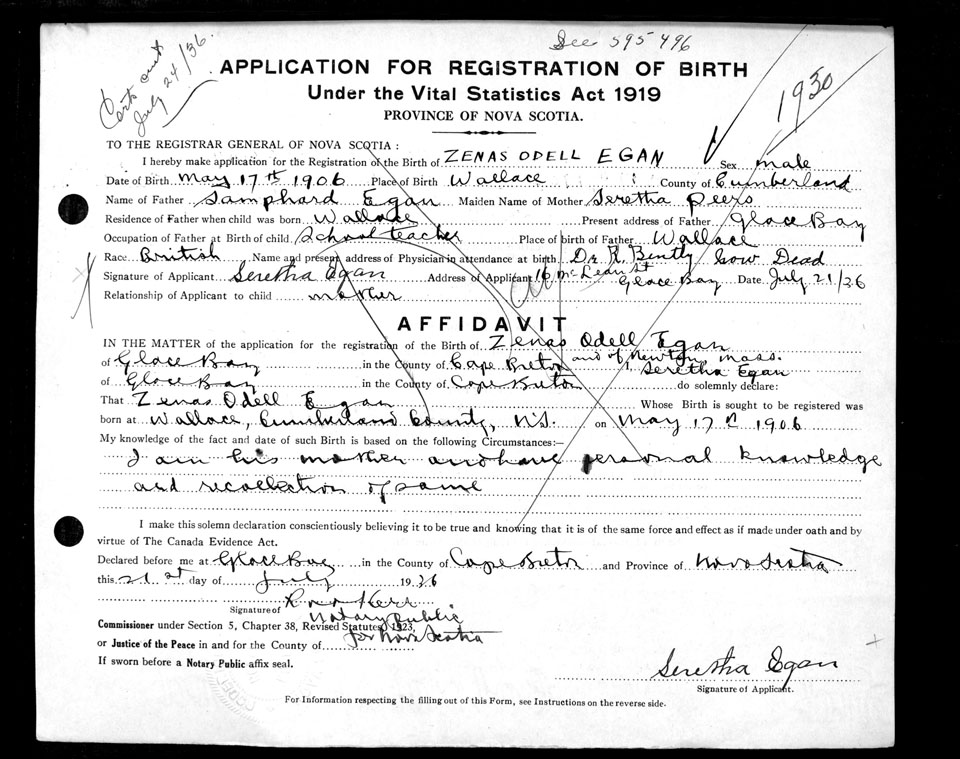 See 595496
Certs out
July 24/36.
1930
APPLICATION FOR REGISTRATION OF BIRTH
Under the Vital Statistics Act 1919
PROVINCE OF NOVA SCOTIA.
TO THE REGISTRAR GENERAL OF NOVA SCOTIA :
I hereby make application for the Registration of the Birth of ZENAS ODELL EGAN Sex male
Date of Birth May 17th 1906 Place of Birth Wallace County of Cumberland
Name of Father Samphard Egan Maiden Name of Mother Seretha Peers
Residence of Father when child was born Wallace Present address of Father Glace Bay
Occupation of Father at Birth of child School teacher Place of birth of Father Wallace
Race British Name and present address of Physician in attendance at birth Dr R. Bently Dead
Signature of Applicant Seretha Egan Address of Applicant 16 McLean St Glace Bay Date July 21/36
Relationship of Applicant to child mother
AFFIDAVIT
IN THE MATTER of the application for the registration of the Birth of Zenas Odell Egan
of Glace Bay in the County of Cape Breton and of Newton, Mass. I, Seretha Egan
of Glace Bay in the County of Cape Breton do solemnly declare:
That Zenas Odell Egan Whose Birth is sought to be registered was
born at Wallace, Cumberland County, N.S. on May 17th 1906
My knowledge of the fact and date of such Birth is based on the following Circumstances:—
I am his mother and have personal knowledge
and recollection of same
I make this solemn declaration conscientiously believing it to be true and knowing that it is of the same force and effect as if made under oath and by
virtue of The Canada Evidence Act.
Declared before me at Glace Bay in the County of Cape Breton and Province of Nova Scotia
this 21st day of July 1936
Signature of Kerr
Notary Public
Commissioner under Section 5, Chapter 38, Revised Statutes, 1923,
for Nova Scotia
or Justice of the Peace in and for the County of
If sworn before a Notary Public affix seal.
Seretha Egan
Signature of Applicant.
For Information respecting the filling out of this Form, see Instructions on the reverse side.